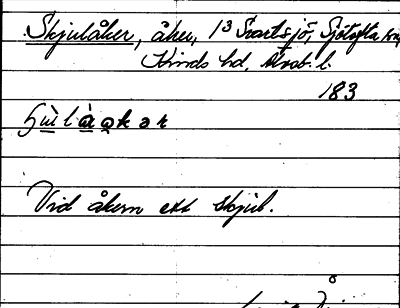 Skjulåker, åker, 13 Svartsjö, Sjötofta sn,
Kinds hd, Älvsb. l.
183
Vid åkern ett skjul.